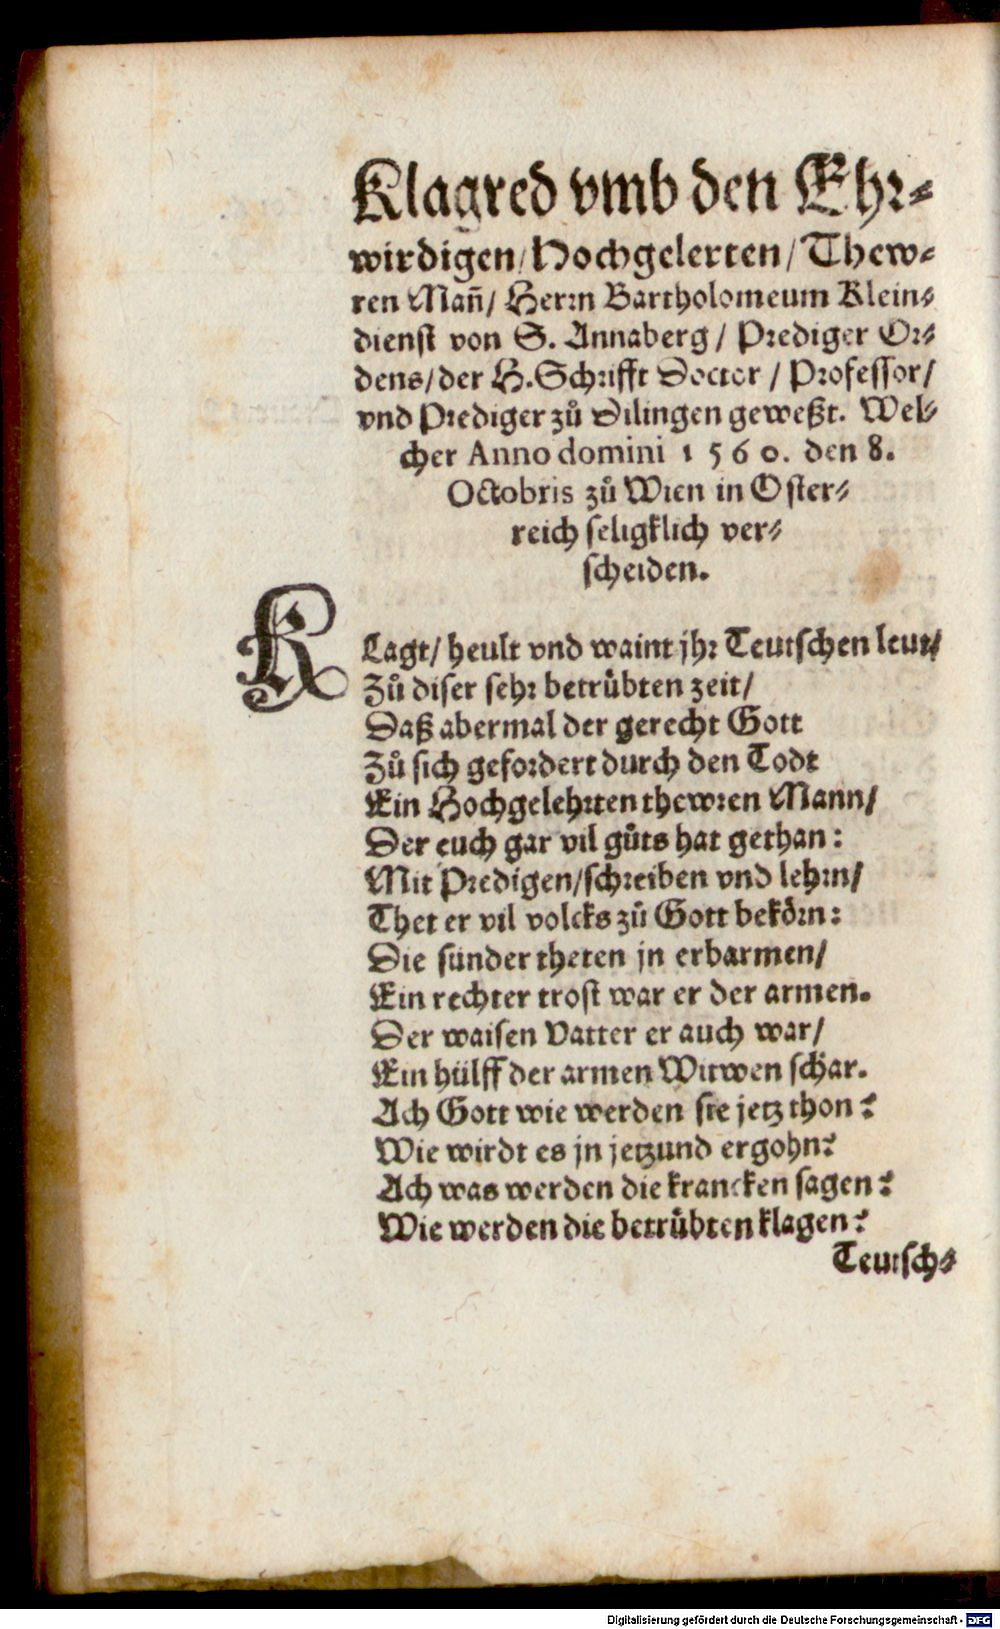 Klagred vmb den Ehr⸗
wirdigen/ Hochgelerten/ Thew⸗
ren Mañ/ Herrn Bartholomeum Klein⸗
dienst von S. Annaberg/ Prediger Or⸗
dens/ der H. Schrifft Doctor/ Professor/
vnd Prediger zů Dilingen geweßt. Wel⸗
cher Anno domini 1560. den 8.
Octobris zů Wien in Oster⸗
reich seligklich ver⸗
scheiden.
KLagt/ heult vnd waint jhr Teutschen leut/
Zů diser sehr betrübten zeit/
Daß abermal der gerecht Gott
Zů sich gefordert durch den Todt
Ein Hochgelehrten thewren Mann/
Der euch gar vil gůts hat gethan:
Mit Predigen/ schreiben vnd lehrn/
Thet er vil volcks zů Gott bekörn:
Die sünder theten jn erbarmen/
Ein rechter trost war er der armen.
Der waisen Vatter er auch war/
Ein hülff der armen Witwen schar.
Ach Gott wie werden sie jetz thon?
Wie wirdt es jn jetzund ergohn?
Ach was werden die krancken sagen?
Wie werden die betrübten klagen?
Teutsch⸗
Digitalisierung gefördert durch die Deutsche Forschungsgemeinschaft - DFG